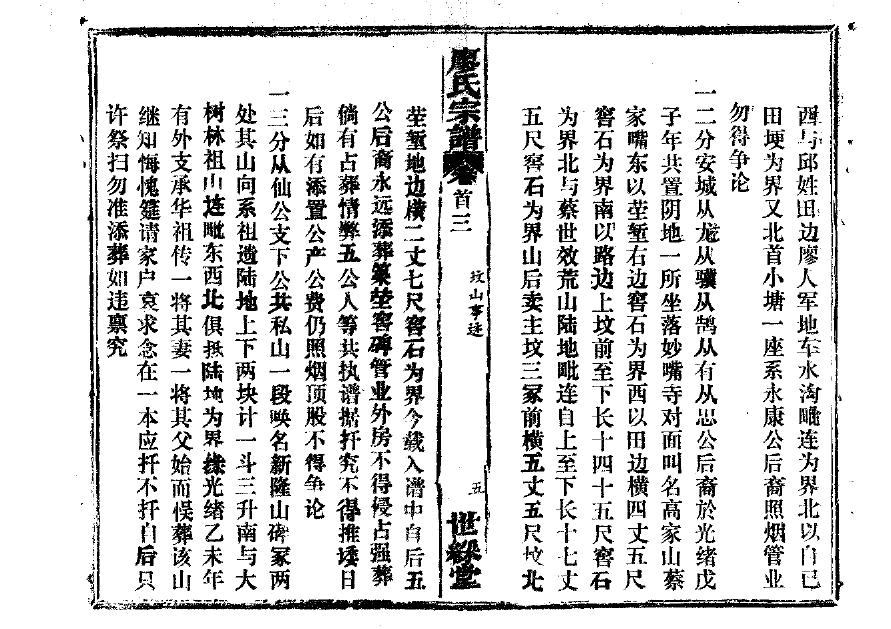 西与邱姓田边廖人军地车水沟毗连为界北以自己
田埂为界又北首小塘一座系永康公后裔照烟管业
勿得争论
一二分安城从龙从骥从鹄从有从思公后裔於光绪戊
子年共置阴地一所坐落妙嘴寺对面叫名高家山蔡
家嘴东以茔堑右边窖石为界西以田边横四丈五尺
窖石为界南以路边上坟前至下长十四丈五尺窖石
为界北与蔡世效荒山陆地毗连自上至下长十七丈
五尺窖石为界山后卖主坟三冢前横五丈五尺坟北
廖氏宗譜
卷首三
坟山事迹
五
世綵堂
茔堑地边横二丈七尺窖石为界今载入谱中自后五
公后裔永远添葬築茔窖碑管业外房不得侵占强葬
倘有占葬情弊五公人等共执谱据扦究不得推诿日
后如有添置公产公费仍照烟顶股不得争论
一三分从仙公支下公共私山一段唤名新隆山碑冢两
处其山向系祖遗陆地上下两块计一斗三升南与大
树林祖山连毗东西北俱抵陆地为界缘光绪乙未年
有外支承华祖传一将其妻一将其父始而悮葬该山
继知悔愧筵请家户哀求念在一本应扦不扦自后只
许祭扫勿准添葬如违禀究